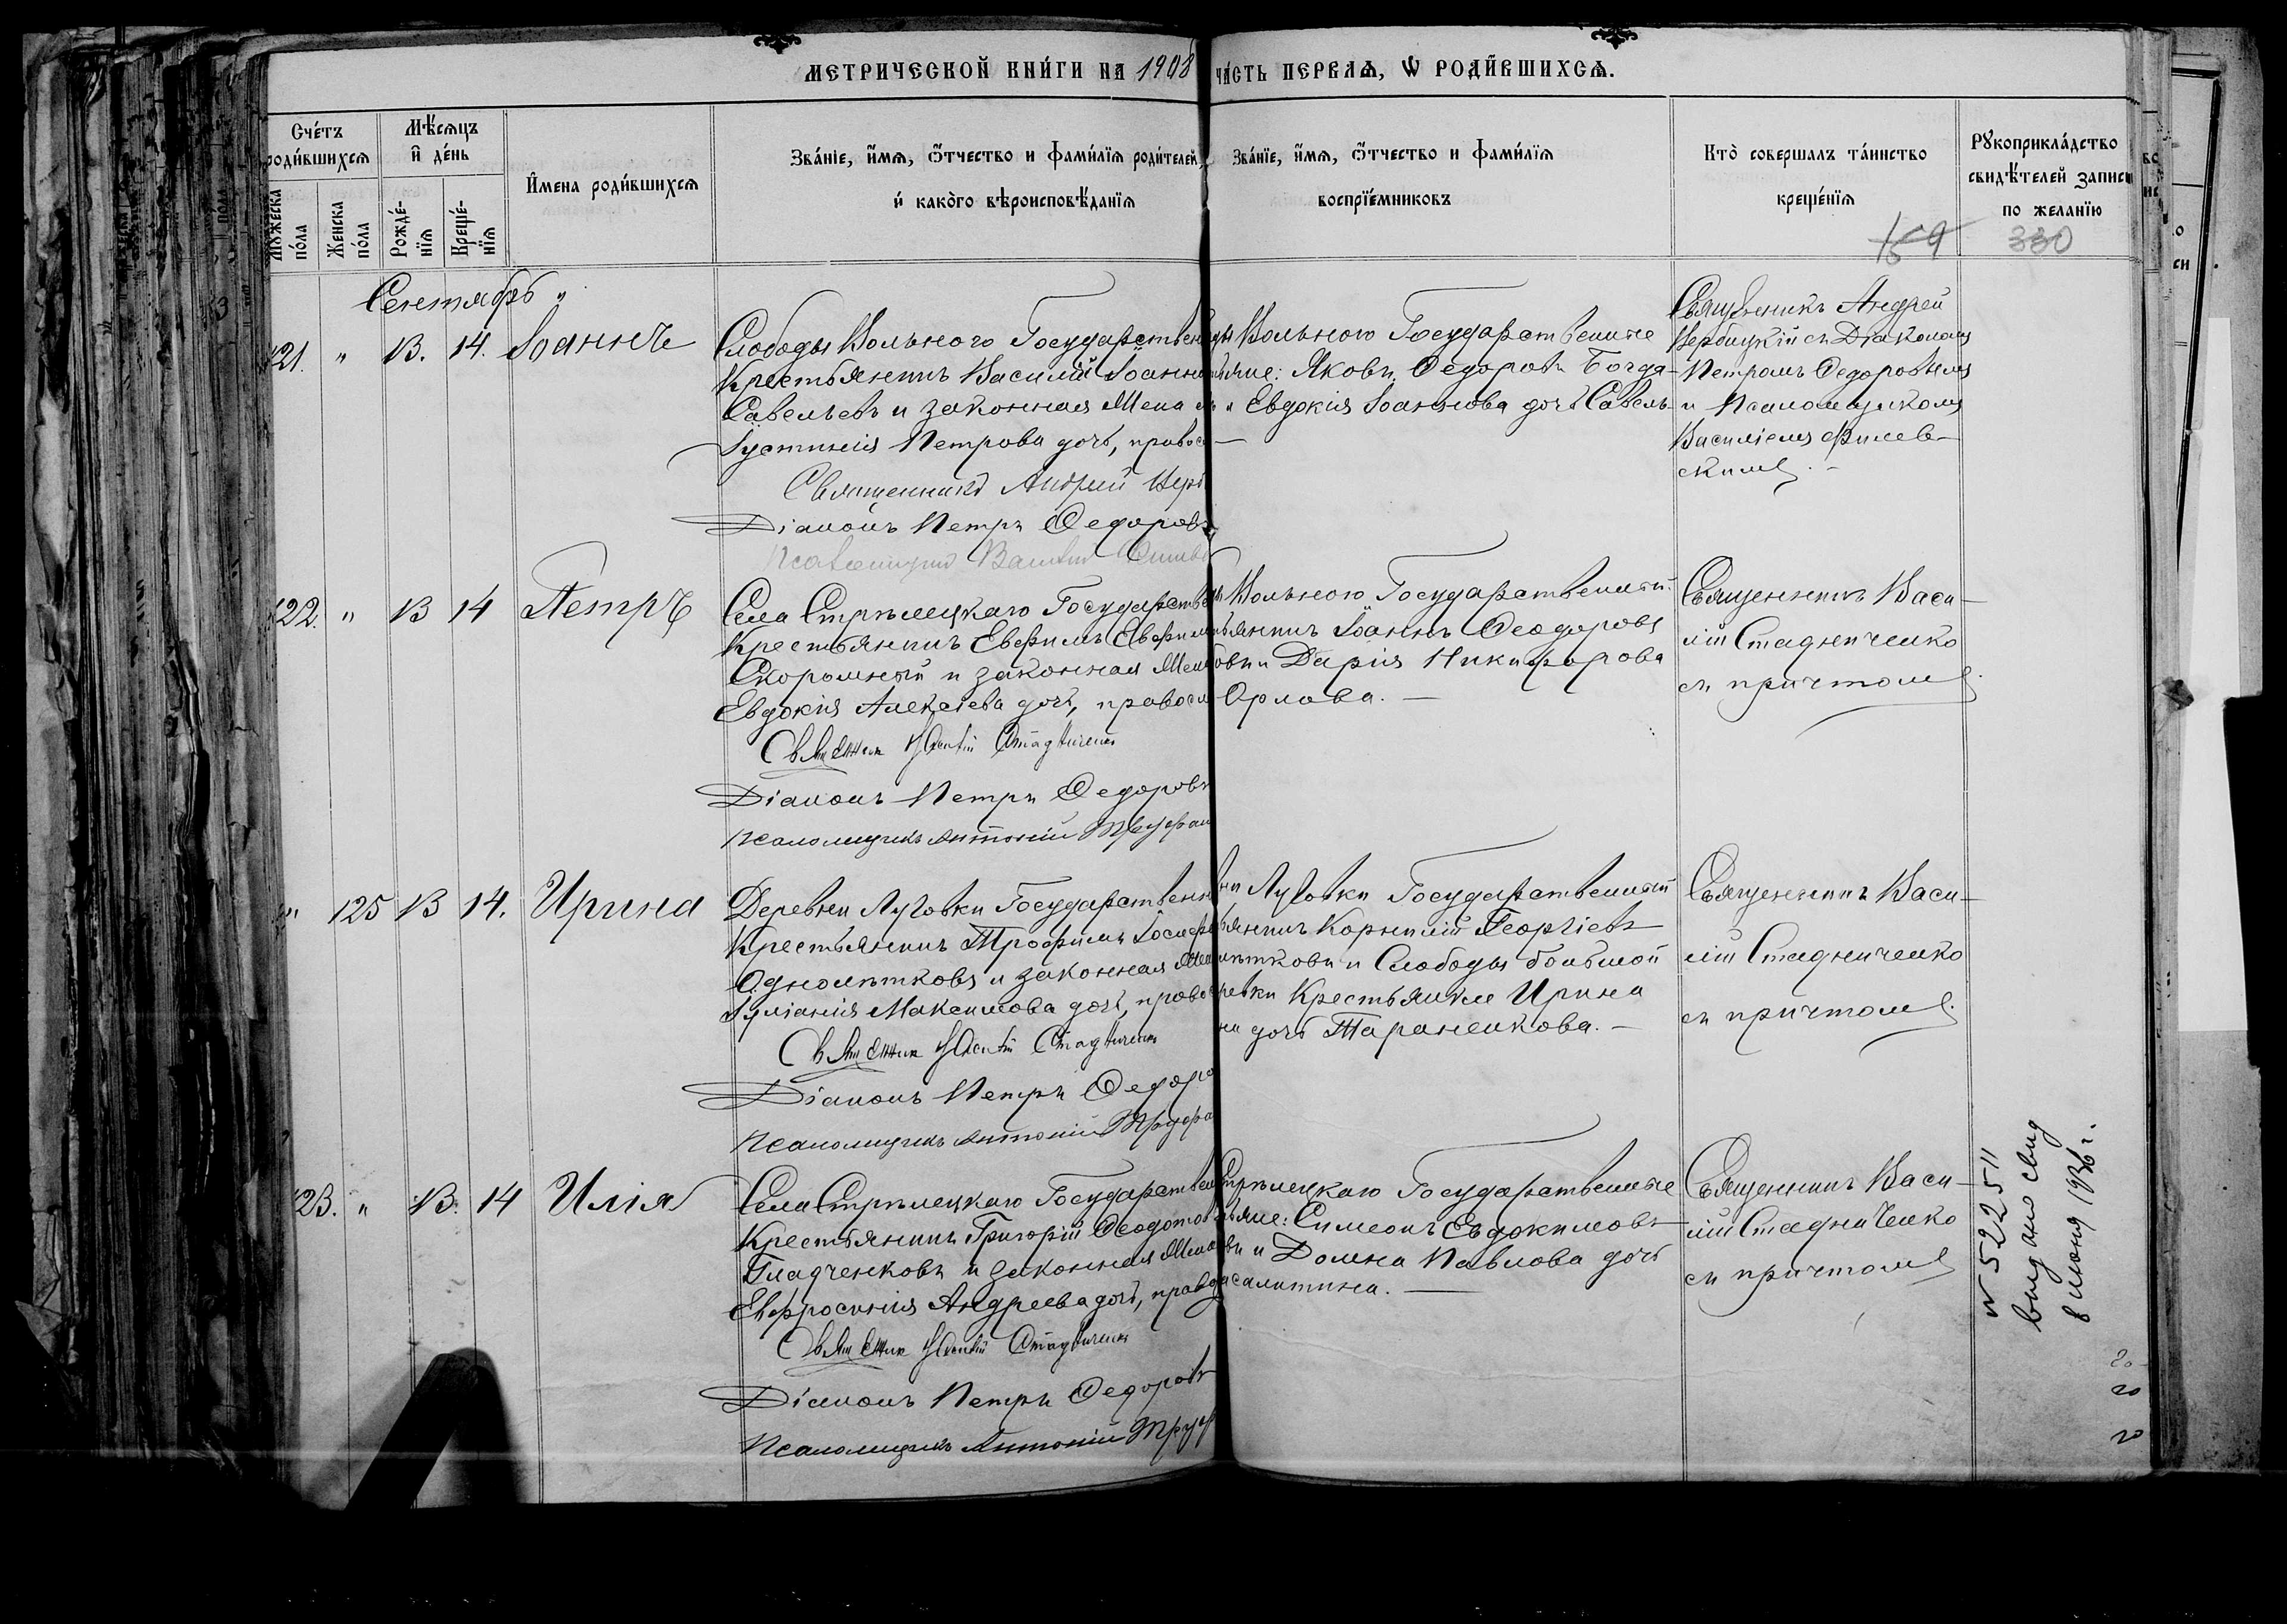 МЕТРИЧЕСКОЙ КНИ́ГИ НА 1908
ЧА́СТЬ ПЕРВАѦ, Ѡ РОДИ́ВШИХСѦ.
Сче́тъ роди́вшихсѧ
Мѣ́сѧцъ и҆ де́нь
И҆мена роди́вшихсѧ
Зва́нїе, и҆́мѧ, ѻ҆́тчество и фами́лїѧ роди́телей, и҆ како́гѡ вѣроисповѣ́данїѧ
Зва́нїе, и҆́мѧ, ѻ҆́тчество и фами́лїѧ воспрїе́мниковъ
Кто̀ совершалъ та́инство креще́нїѧ
Рꙋкоприкла́дство свидѣ́телей записи по желанїю
Мꙋжеска по́ла
Женска по́ла
Рожде́нїѧ
Креще́нїѧ
159
330
Сентябрь
121. " 13. 14. Іоаннъ
Слободы Вольного Государствен
Крестьянинъ Василій Іоанно
Савельевъ и законная Жена
Іустинія Петрова дочь, правос
Священникъ Андрей Верб
Діаконъ Петръ Федоровъ
Псаломщикъ Василій
Вольного Государственные
яне: Яковъ Федоровъ Богда-
и Евдокія Іоаннова дочь Савель-
Священникъ Андрей
Вербицкій съ Діакономъ
Петромъ Федоровымъ
и Псаломщикомъ
Василіемъ Филев-
скимъ.
122. " 13 14 Петръ
Села Стрѣлецкаго Государстве
Крестьянинъ Евфимъ Евфим
Скоромный и законная Жена
Евдокія Алексіева дочь, правосл
Священникъ Василій Стадниченко
Діаконъ Петръ Федоровъ
Псаломщикъ Антоній Труфан
Вольного Государственный
янинъ Іоаннъ Феодоровъ
овъ и Дарія Никифорова
Орлова.
Священникъ Васи-
лій Стадниченко
съ причтомъ.
" 125 13 14. Ирина
Деревни Луговки Государственн
Крестьянинъ Трофимъ Іосифо
Однолѣтковъ и законная Жена
Іуліанія Максимова дочь, право
Священникъ Василій Стадниченко
Діаконъ Петръ Федоро
Псаломщикъ Антоній Труфа
ни Луговки Государственный
янинъ Корнилій Георгіевъ
лѣтковъ и Слободы большой
ревки Крестьянка Ирина
на дочь Тараненкова.
Священникъ Васи-
лій Стадниченко
съ причтомъ.
123. " 13. 14 Илія
Села Стрѣлецкаго Государствен
Крестьянинъ Григорій Феодотов
Гладченковъ и законная Жена
Евфросинія Андреева дочь, прав
Священникъ Василій Стадниченко
Діаконъ Петръ Федоров
Псаломщикъ Антоній Труф
Стрѣлецкаго Государственные
яне: Симеонъ Евдокимовъ
въ и Домна Павлова дочь
салитина.
Священникъ Васи-
лій Стадниченко
съ причтомъ
N 522511
выдано свид
8 июня 1936 г.
20
20
20